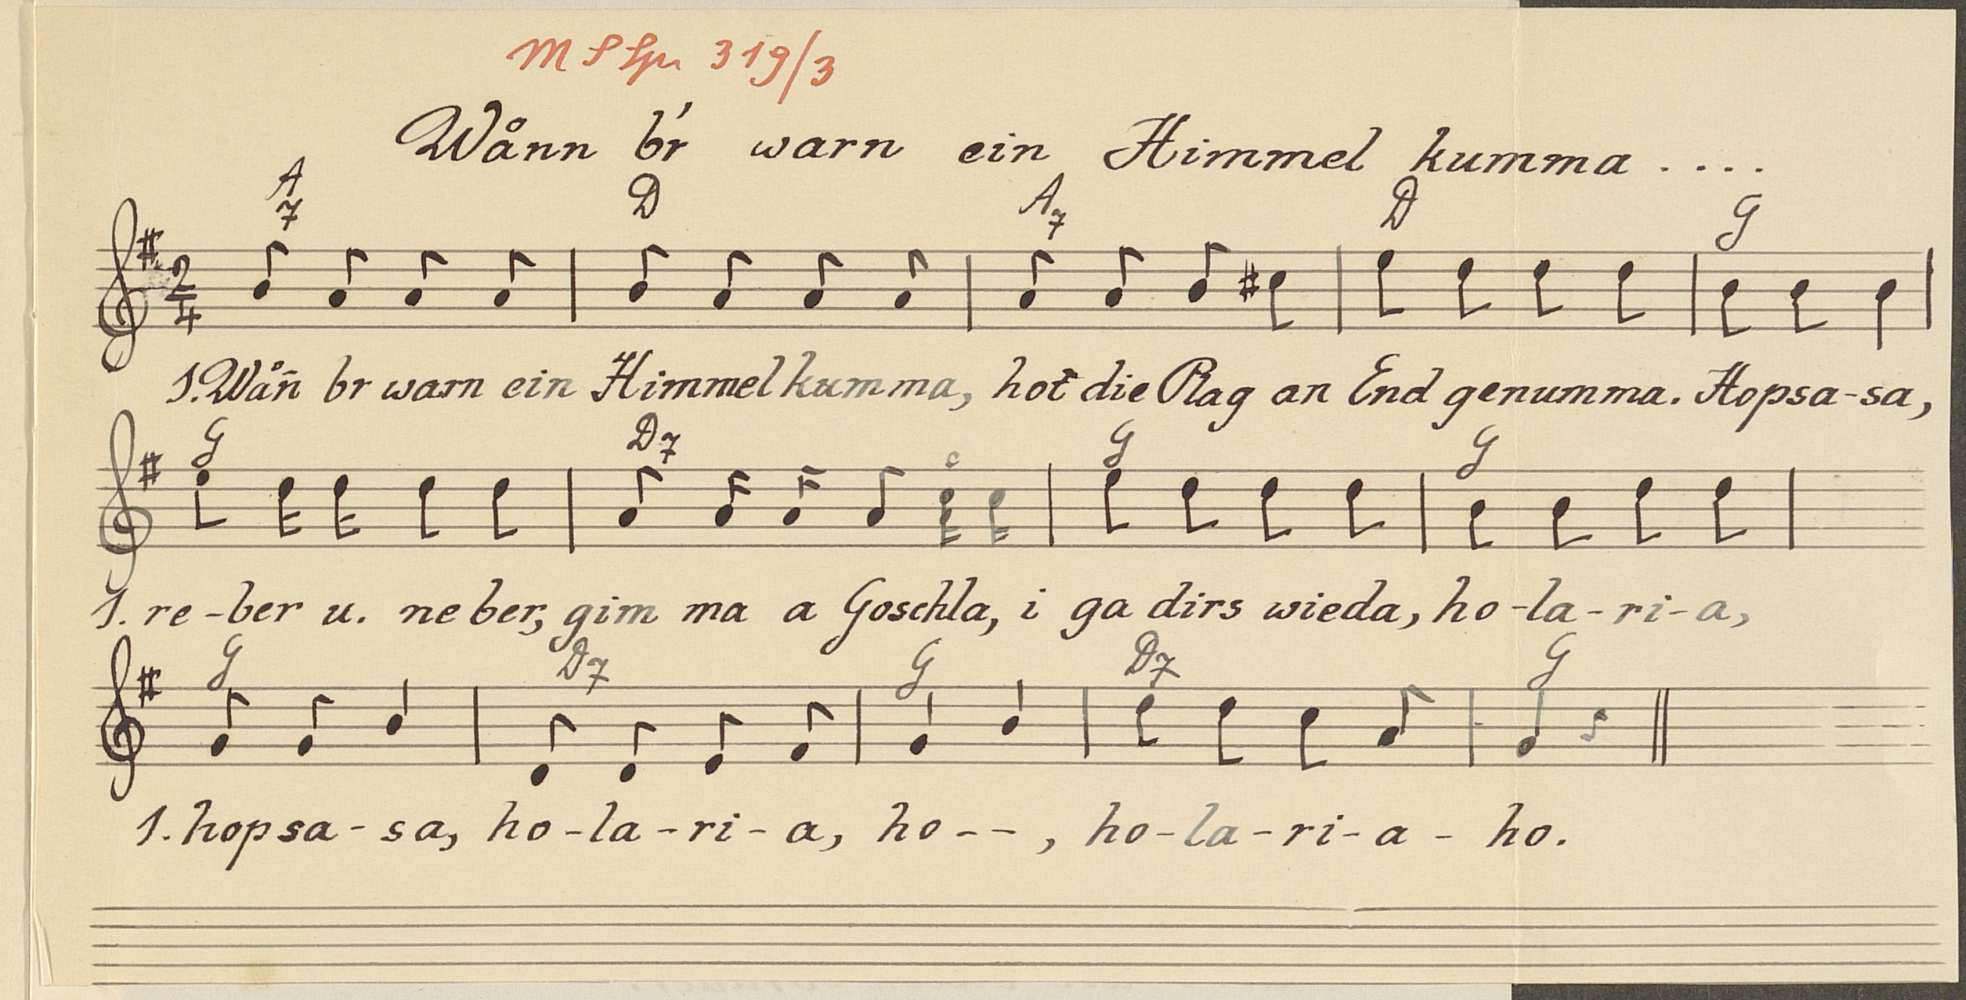 319/3
Wånn b'r warn ein Himmel kumma ....
A7 D A7 D G
2/4
1. Wån̄ br warn ein Himmel kumma, hot die Plag an End genumma. Hopsa-sa,
G D7 c G G
1. re-ber u. neber, gim ma a Goschla, i ga dirs wieda, ho-la-ri-a,
G D7 G D7 G
1. hopsa-sa, ho-la-ri-a, ho--, ho-la-ri-a-ho.